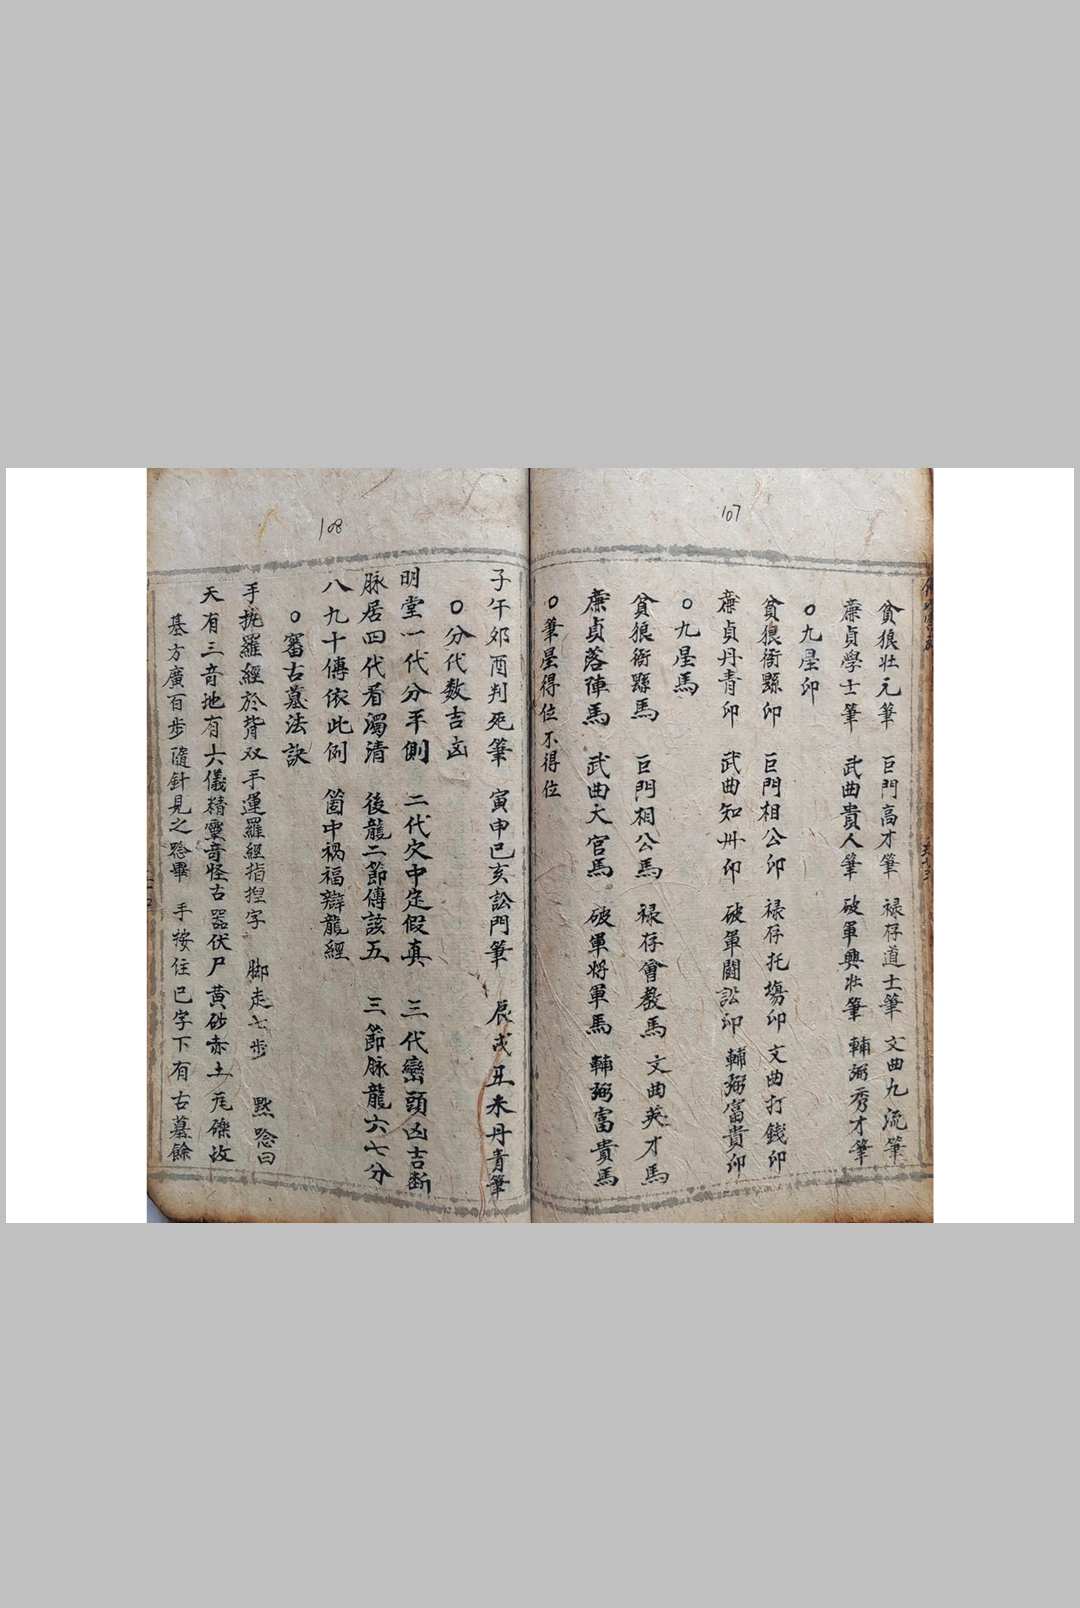 107
貪狼壯元筆 巨門高才筆 禄存道士筆 文曲九流筆
廉貞學士筆 武曲貴人筆 破軍興壯筆 輔弼秀才筆
○九星印
貪狼衙縣印 巨門相公印 禄存托塲印 文曲打錢印
廉貞丹青印 武曲知州印 破軍鬪訟印 輔弼富貴印
○九星馬
貪狼衙縣馬 巨門相公馬 禄存會教馬 文曲英才馬
廉貞落陣馬 武曲天官馬 破軍将軍馬 輔弼富貴馬
○筆星得位不得位
108
子午夘酉判死筆 寅申巳亥訟門筆 辰戌丑未丹青筆
○分代数吉凶
明堂一代分平側 二代穴中定假真 三代巒頭凶吉断
脉居四代看濁清 後龍二節傳該五 三節脉龍六七分
八九十傳依此例 箇中禍福辯龍經
○審古墓法訣
手挽羅經於背双手運羅經指揑字 脚走七步 黙唸曰
天有三竒地有六儀精靈竒怪古器伏尸黄砂赤土瓦礫坟
基方廣百步隨針見之唸畢 手按住巳字下有古墓餘